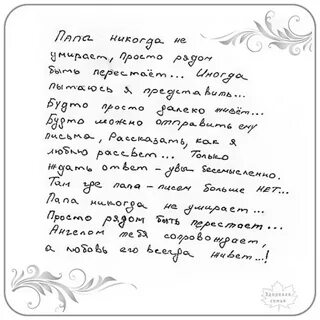 Папы никогда не
умирает, просто рядом
быть перестаёт... Иногда
пытаюсь я представить...
Будто просто далеко живёт...
Будто можно отправить ему
письма, Рассказать, как я
люблю рассвет... Только
ждать ответ - увы бессмысленно.
Там где папа - писем больше НЕТ...
Папа никогда не умирает...
Просто рядом быть перестает...
Ангелом тебя сопровождает,
а любовь его всегда живет...!